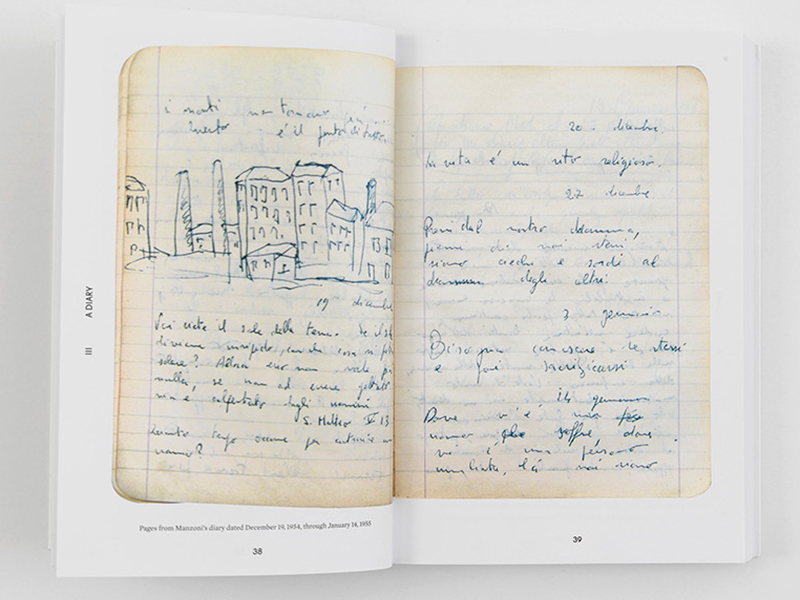 i morti non tornano
è il punto di
19 dicembre
Voi siete il sale della terra. Se il
diviene insipido, con che cosa si
salare? Allora esso non vale
nulla, se non ad essere gettato
via e calpestato dagli uomini
S. Matteo V 13
quanto tempo occorre per
uomo?
III
A DIARY
Pages from Manzoni's diary dated December 19, 1954, through January 14, 1955
38
20 dicembre
La vita è un rito religioso.
27 dicembre
Pieni del nostro dramma,
pieni di noi
siamo ciechi e sordi al
dramma degli altri.
3 gennaio
Bisogna conoscere se stessi
e poi sacrificarsi
14 gennaio
Dove v'è un
uomo che soffre, dove
v'è una persona
umiliata, là noi siamo
39